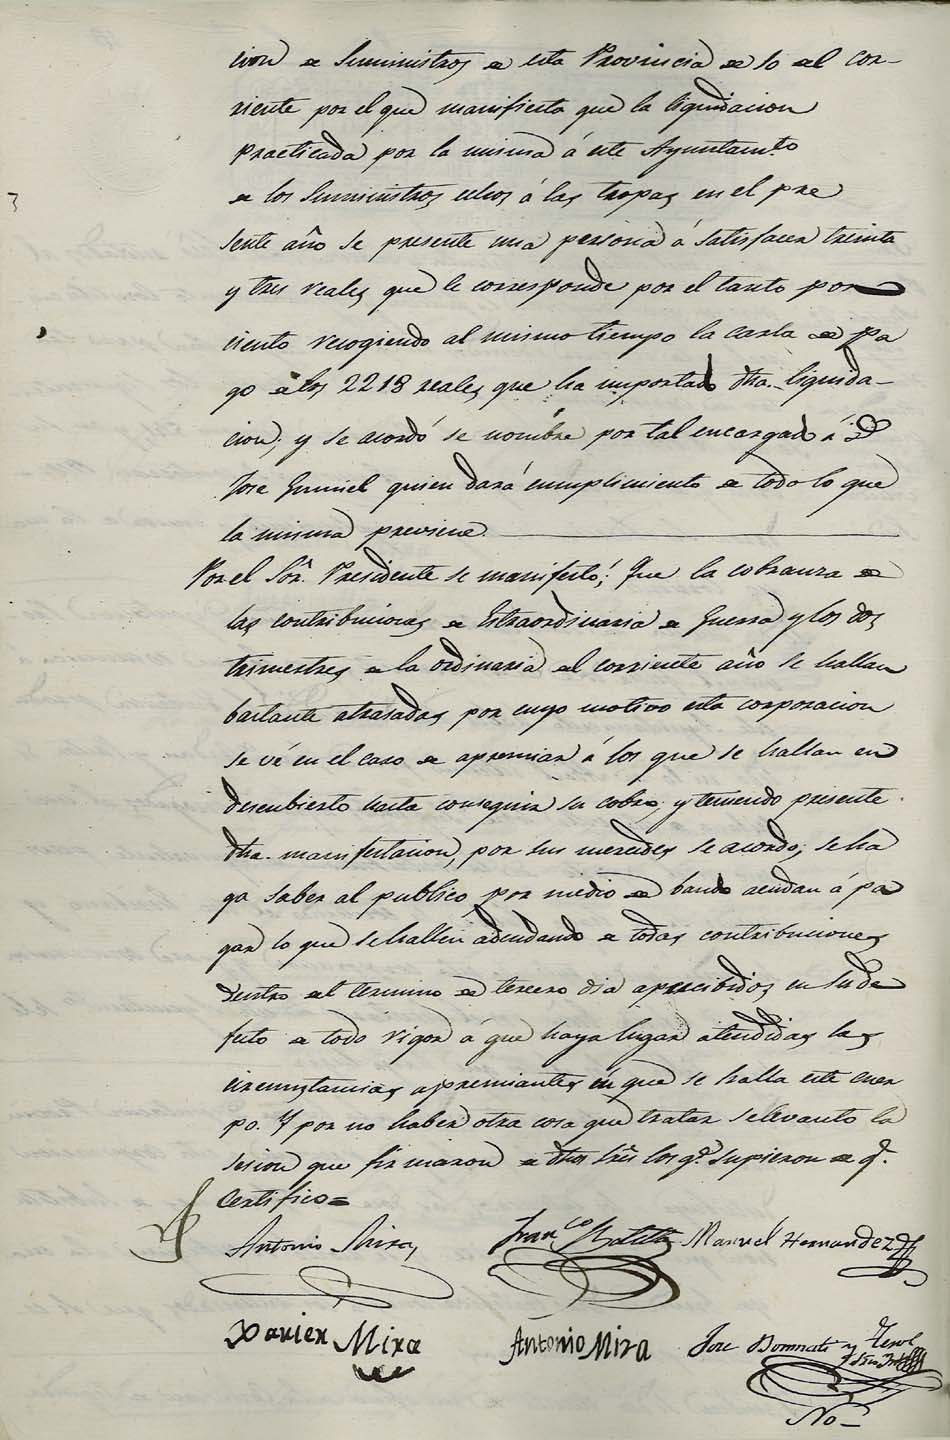 cion de Suministros de esta Provincia de 10 del cor-
riente por el que manifiesta que la liquidacion
practicada por la misma á este Ayuntamto
de los Suministros echos á las tropas en el pre
sente año se presente una persona á satisfacer treinta
y tres reales que le corresponde por el tanto por
ciento recogiendo al mismo tiempo la carta de pa
go de los 2218 reales que ha importado dha. liquida-
cion; y se acordó se nombre por tal encargado á Dn
Jose Gumiel quien dará cumplimiento de todo lo que
la misma previene.
Por el Sor. Presidente se manifestó; Que la cobranza de
las contribuciones de Estraordinaria de Guerra y los dos
trimestres de la ordinaria del corriente año se hallan
bastante atrasadas por cuyo motivo esta corporacion
se vé en el caso de apremiar á los que se hallan en
descubierto hasta conseguir su cobro; y teniendo presente
dha. manifestacion, por sus mercedes se acordo; se ha
ga saber al publico por medio de bando acudan á pa
gar lo que se hallen adeudando de todas contribuciones
dentro del termino de tercero dia apercibidos en su de
feto de todo rigor á que haya lugar atendidas las
circunstancias apremiantes en que se halla este cuer
po. Y por no haber otra cosa que tratar se levanto la
sesion que firmaron de dhos Sres los q. supieron de q.
Certifico=
Antonio Mira Franco Manuel Hernandez
Xavier Mira Antonio Mira Jose y Terol
No